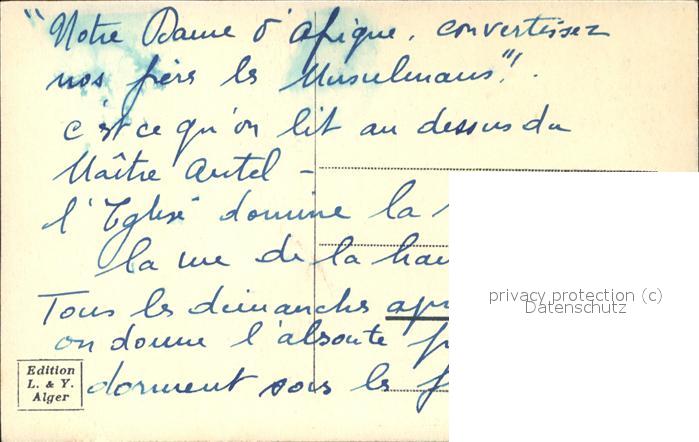 "Notre Dame d'Afique, convertissez
nos frères les Musulmans"!.
c'est ce qu'on lit au dessus du
Maître Autel -
l'Eglise domine la
la vue de la
Tous les dimanches
on donne l'absoute
dorment sous les
Edition
L. & Y.
Alger
privacy protection (c)
Datenschutz